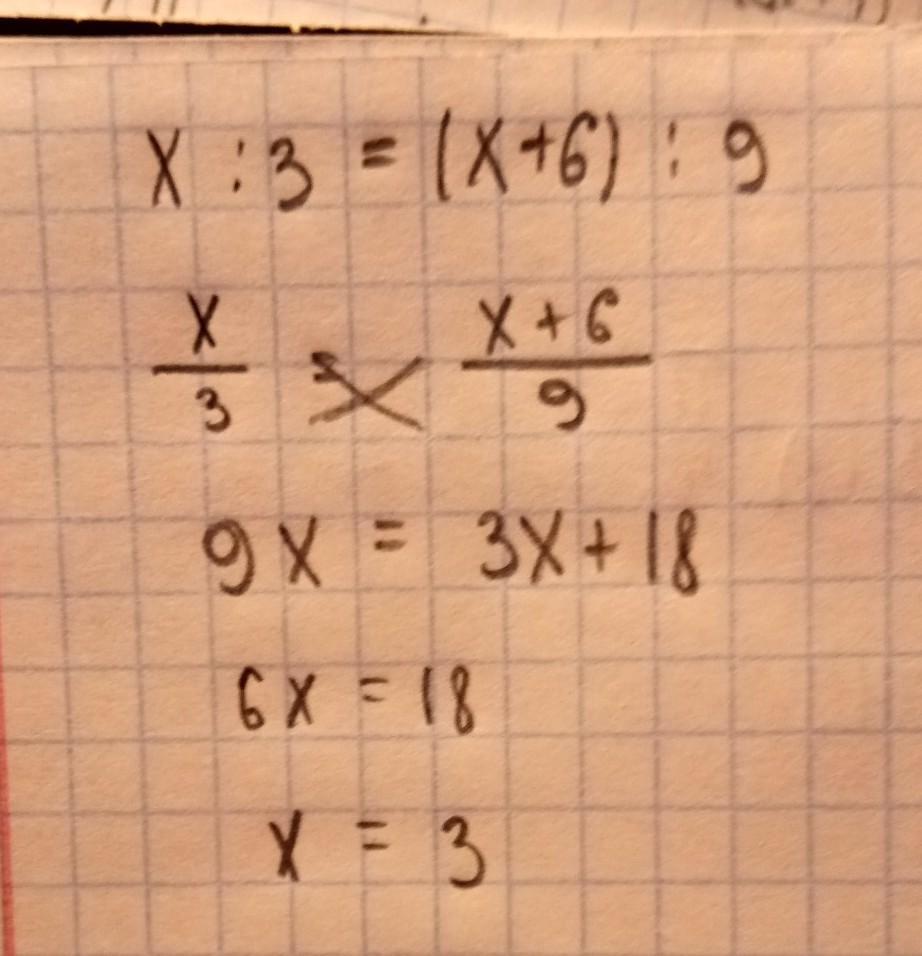 x : 3 = (x+6) : 9
x/3 = (x+6)/9
9x = 3x+18
6x = 18
x = 3